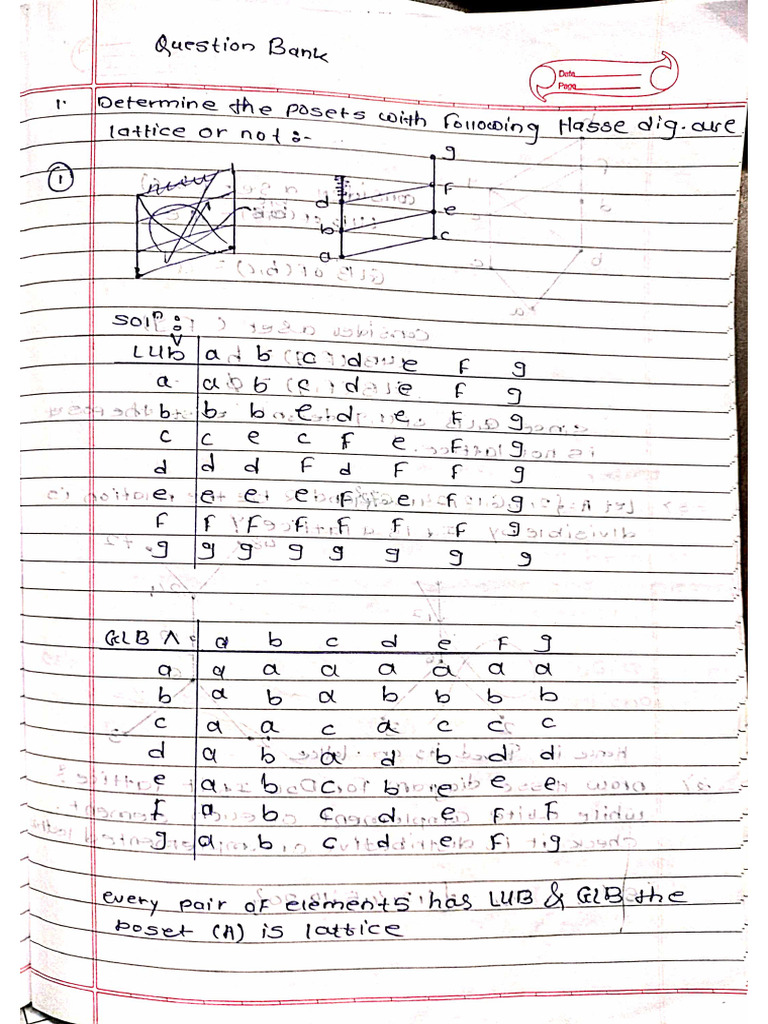 Question Bank
Date
Page
1. Determine the posets with following Hasse dig. are
lattice or not :-
①
g
f
d
e
b
c
a
Solⁿ :
LUB ∨ a b c d e f g
a a b c d e f g
b b b e d e f g
c c e c f e f g
d d d f d f f g
e e e e f e f g
f f f f f f f g
g g g g g g g g
GLB ∧ a b c d e f g
a a a a a a a a
b a b a b b b b
c a a c a c c c
d a b a d b d d
e a b c b e e e
f a b c d e f f
g a b c d e f g
every pair of elements has LUB & GLB the
poset (A) is lattice